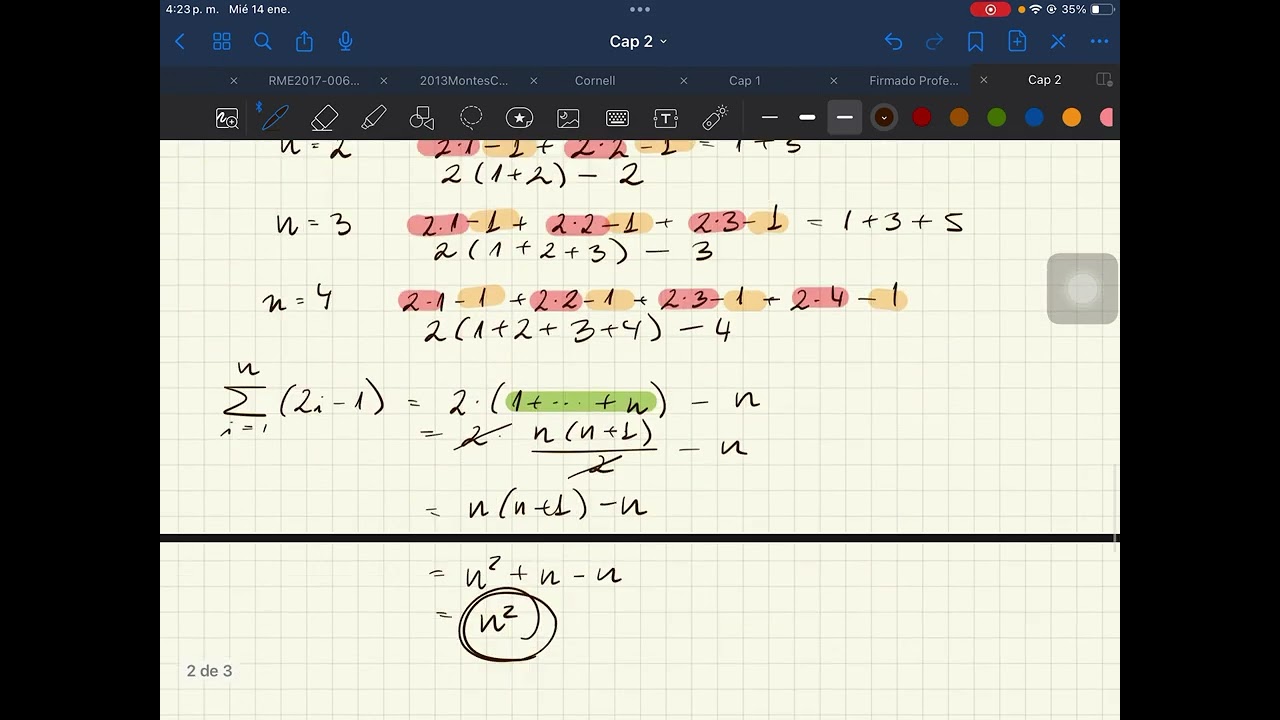 4:23 p. m. Mié 14 ene. 35%
Cap 2
RME2017-006... 2013MontesC... Cornell Cap 1 Firmado Profe... Cap 2
n = 2 2·1 - 1 + 2·2 - 1 = 1 + 3
2 (1+2) - 2
n = 3 2·1 - 1 + 2·2 - 1 + 2·3 - 1 = 1 + 3 + 5
2 (1 + 2 + 3) - 3
n = 4 2·1 - 1 + 2·2 - 1 + 2·3 - 1 + 2·4 - 1
2 (1 + 2 + 3 + 4) - 4
n
∑ (2i - 1) = 2·(1 + ··· + n) - n
i = 1
= 2· n (n+1) / 2 - n
= n (n+1) - n
= n² + n - n
= n²
2 de 3